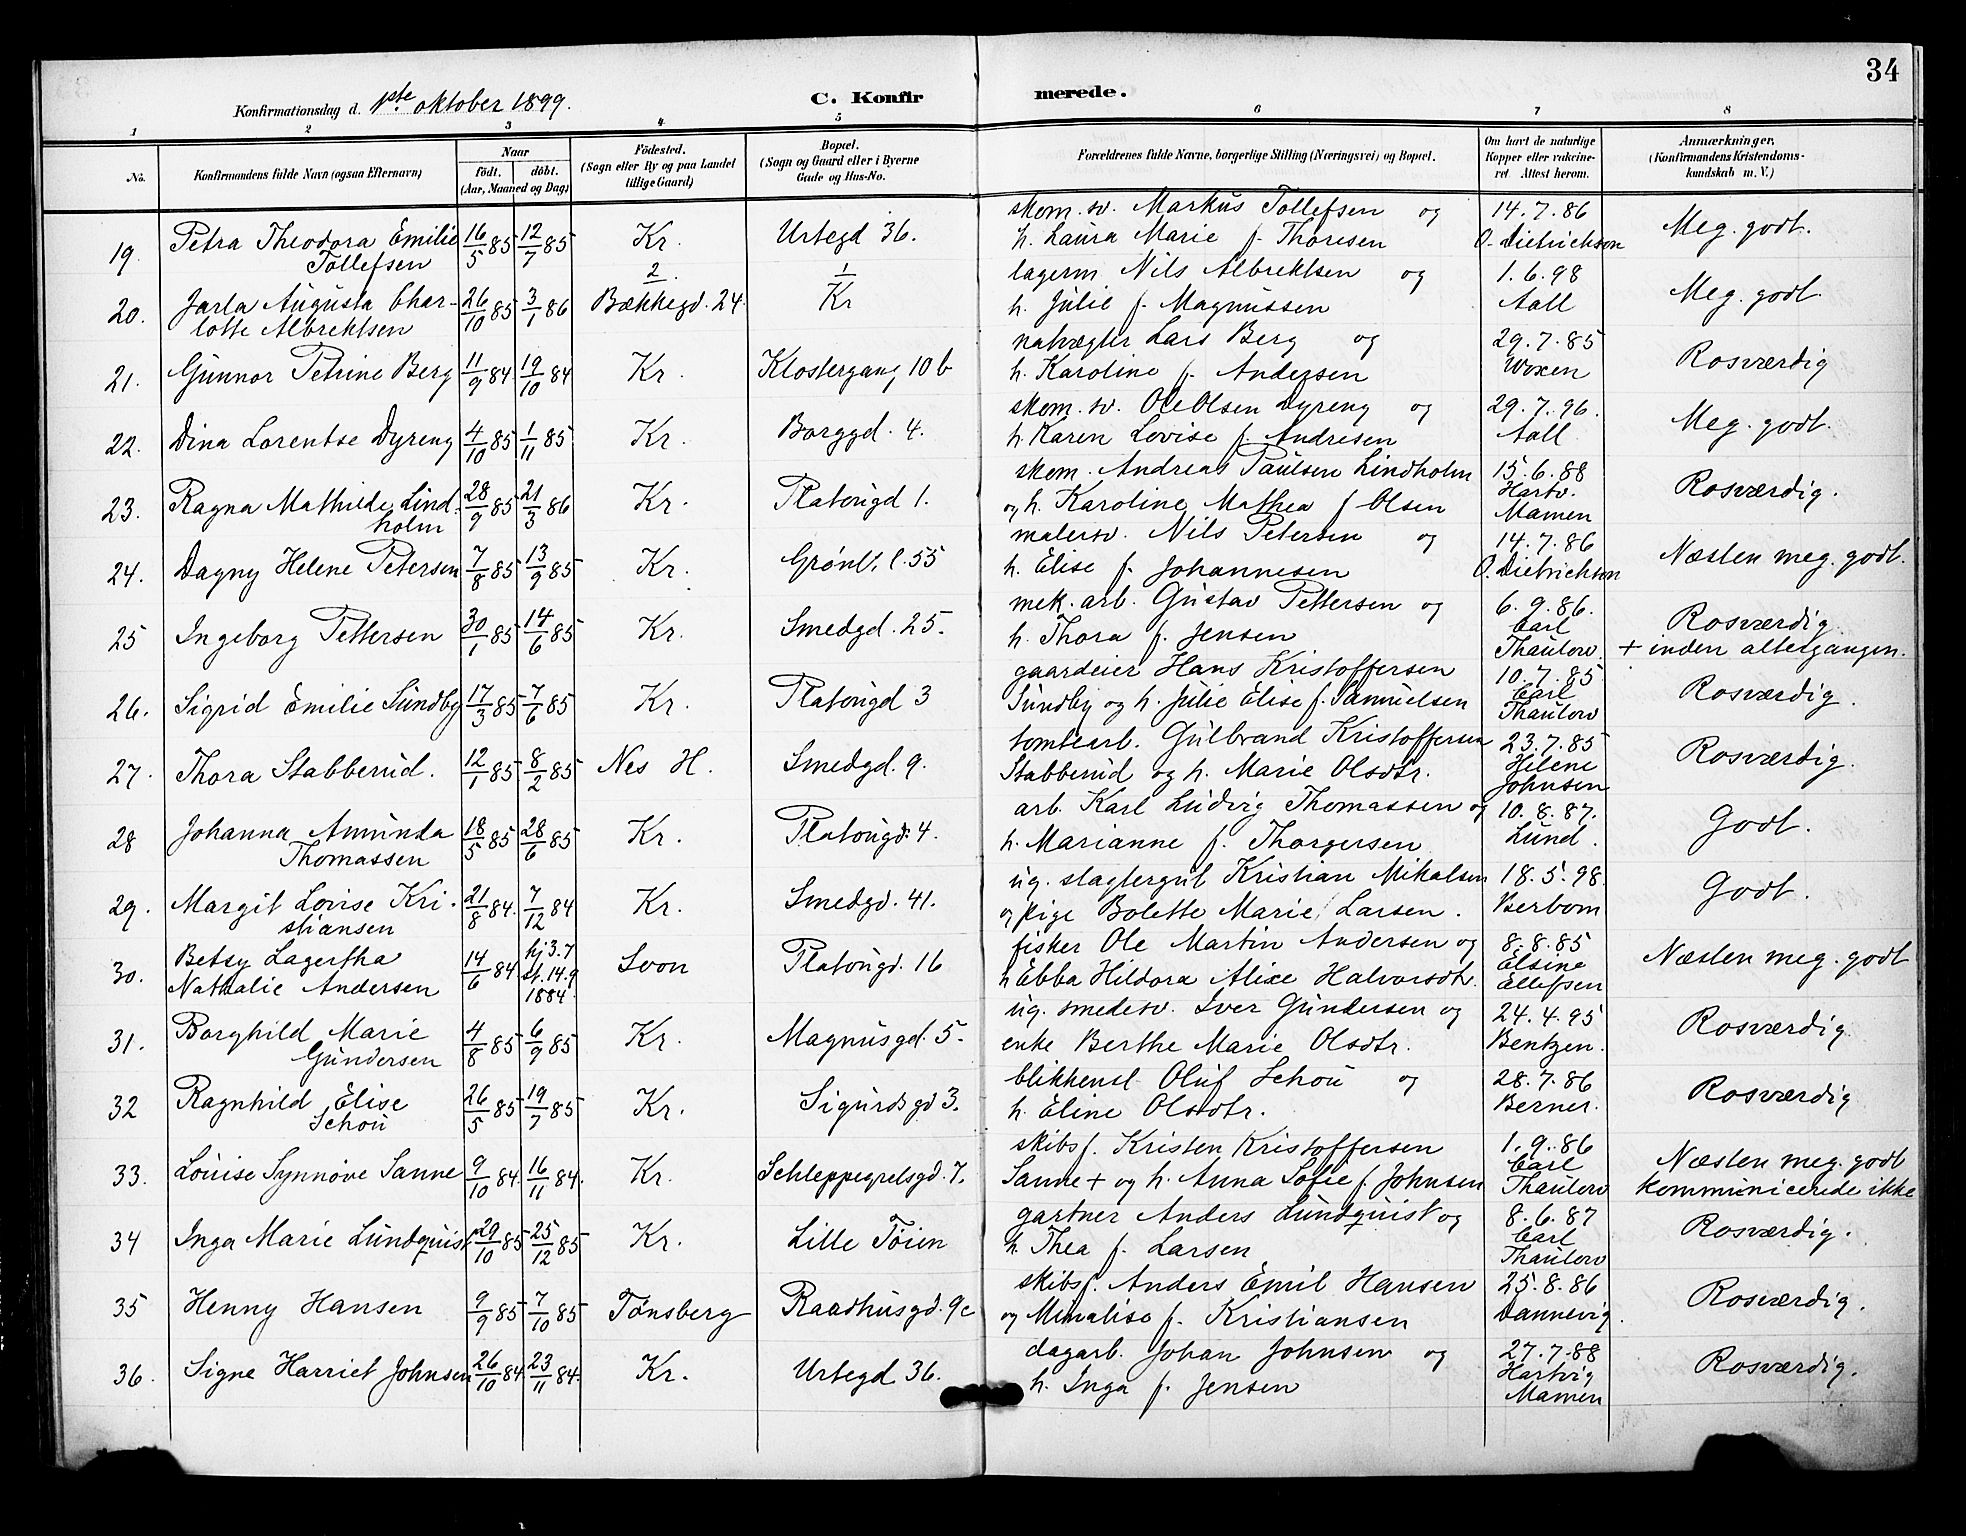 34
Konfirmationsdag d. 1ste oktober 1899. C. Konfirmerede.
1 2 3 4 5 6 7 8
No. Konfirmandens fulde Navn (ogsaa Efternavn) Naar født. døbt. (Aar, Maaned og Dag) Fødested. (Sogn eller By og paa Landet tillige Gaard) Bopæl. (Sogn og Gaard eller i Byerne Gade og Hus-No.) Forældrenes fulde Navne, borgerlige Stilling (Næringsvei) og Bopæl. Om havt de naturlige Kopper eller vaccineret. Attest herom. Anmærkninger. (Konfirmandens Kristendomskundskab m. V.)
19. Petra Theodora Emilie Tollefsen 16/5 85 12/7 85 Kr. Urtegd 36. skom. sv. Markus Tollefsen og h. Laura Marie f. Thoresen 14.7.86 O. Dietrichson Meg. godt.
20. Jarla Augusta Charlotte Albrektsen 26/10 85 3/1 86 2. Bækkegd. 24. 1 Kr lagerm. Nils Albrektsen og h. Julie f. Magnussen 1.6.98 Aall Meg. godt.
21. Gunnor Petrine Berg 11/9 84 19/10 84 Kr. Klostergang 10 b natvægter Lars Berg og h. Karoline f. Andersen 29.7.85 Woxen Rosværdig
22. Dina Lorentse Dyreng 4/10 85 1/11 85 Kr. Borggd. 4. skom. sv. Ole Olsen Dyreng og h. Karen Lovise f. Andresen 29.7.96. Aall Meg. godt.
23. Ragna Mathilde Lindholm 28/9 85 21/3 86 Kr. Platougd 1. skom. Andreas Paulsen Lindholm og h. Karoline Mathea f Olsen 15.6.88 Hartv. Mamen Rosværdig.
24. Dagny Helene Petersen 7/8 85 13/9 85 Kr. Grønl. l. 55 malersv. Nils Petersen og h. Elise f. Johannesen 14.7.86 O. Dietrichson Næsten meg. godt.
25 Ingeborg Pettersen 30/1 85 14/6 85 Kr. Smedgd. 25. mek. arb. Gustav Pettersen og h. Thora f. Jensen 6.9.86. Carl Thaulow Rosværdig. + inden altergangen.
26. Sigrid Emilie Sundby 17/3 85 7/6 85 Kr. Platougd 3 gaardeier Hans Kristoffersen Sundby og h. Julie Elise f. Samuelsen 10.7.85 Carl Thaulow Rosværdig.
27. Thora Stabberud. 12/1 85 8/2 85 Nes H. Smedgd. 9. tomtearb. Gulbrand Kristoffersen Stabberud og h. Marie Olsdtr. 23.7.85 Helene Johnsen Rosværdig.
28 Johanna Amunda Thomassen 18/5 85 28/6 85 Kr. Platougd. 4. arb. Karl Ludvig Thomassen og h. Marianne f. Thorgersen 10.8.87. Lund. Godt.
29. Margit Lovise Kristiansen 21/8 84. 7/12 84 Kr. Smedgd. 41. ug. slagtergut Kristian Mikalsen og pige Bolette Marie Larsen. 18.5.98. Berbom Godt.
30. Betsy Lagertha Nathalie Andersen 14/6 84 hj 3.7 st. 14.9 1884. Svon Platougd. 16 fisker Ole Martin Andersen og h Ebba Hildora Alice Halvorsdtr. 8.8.85 Elsine Ellefsen Næsten meg. godt
31. Borghild Marie Gundersen 4/8 85 6/9 85 Kr. Magnusgd. 5. ug. smedesv. Iver Gundersen og enke Berthe Marie Olsdtr. 24.4.95 Bentzen. Rosværdig.
32 Ragnhild Elise Schou 26/5 85 19/7 85 Kr. Sigurdsgd 3. blikkensl. Oluf Schou og h. Eline Olsdtr. 28.7.86 Berner. Rosværdig
33. Louise Synnøve Sanne 9/10 84. 16/11 84. Kr. Schleppegrelsgd. 7. skibsf. Kristen Kristoffersen Sanne + og h. Anna Sofie f. Johnsen 1.9.86 Carl Thaulow Næsten meg. godt kommunicerede ikke
34 Inga Marie Lundquist 29/10 85 25/12 85 Kr. Lille Tøien gartner Anders Lundquist og h. Thea f. Larsen 8.6.87 Carl Thaulow Rosværdig.
35 Henny Hansen 9/9 85 7/10 85 Tønsberg Raadhusgd. 9c skibsf. Anders Emil Hansen og Minalise f. Kristiansen 25.8.86 Dannevig. Rosværdig.
36. Signe Harriet Johnsen 26/10 84 23/11 84. Kr. Urtegd 36. dagarb. Johan Johnsen og h. Inga f. Jensen 27.7.88 Hartvig Mamen Rosværdig.